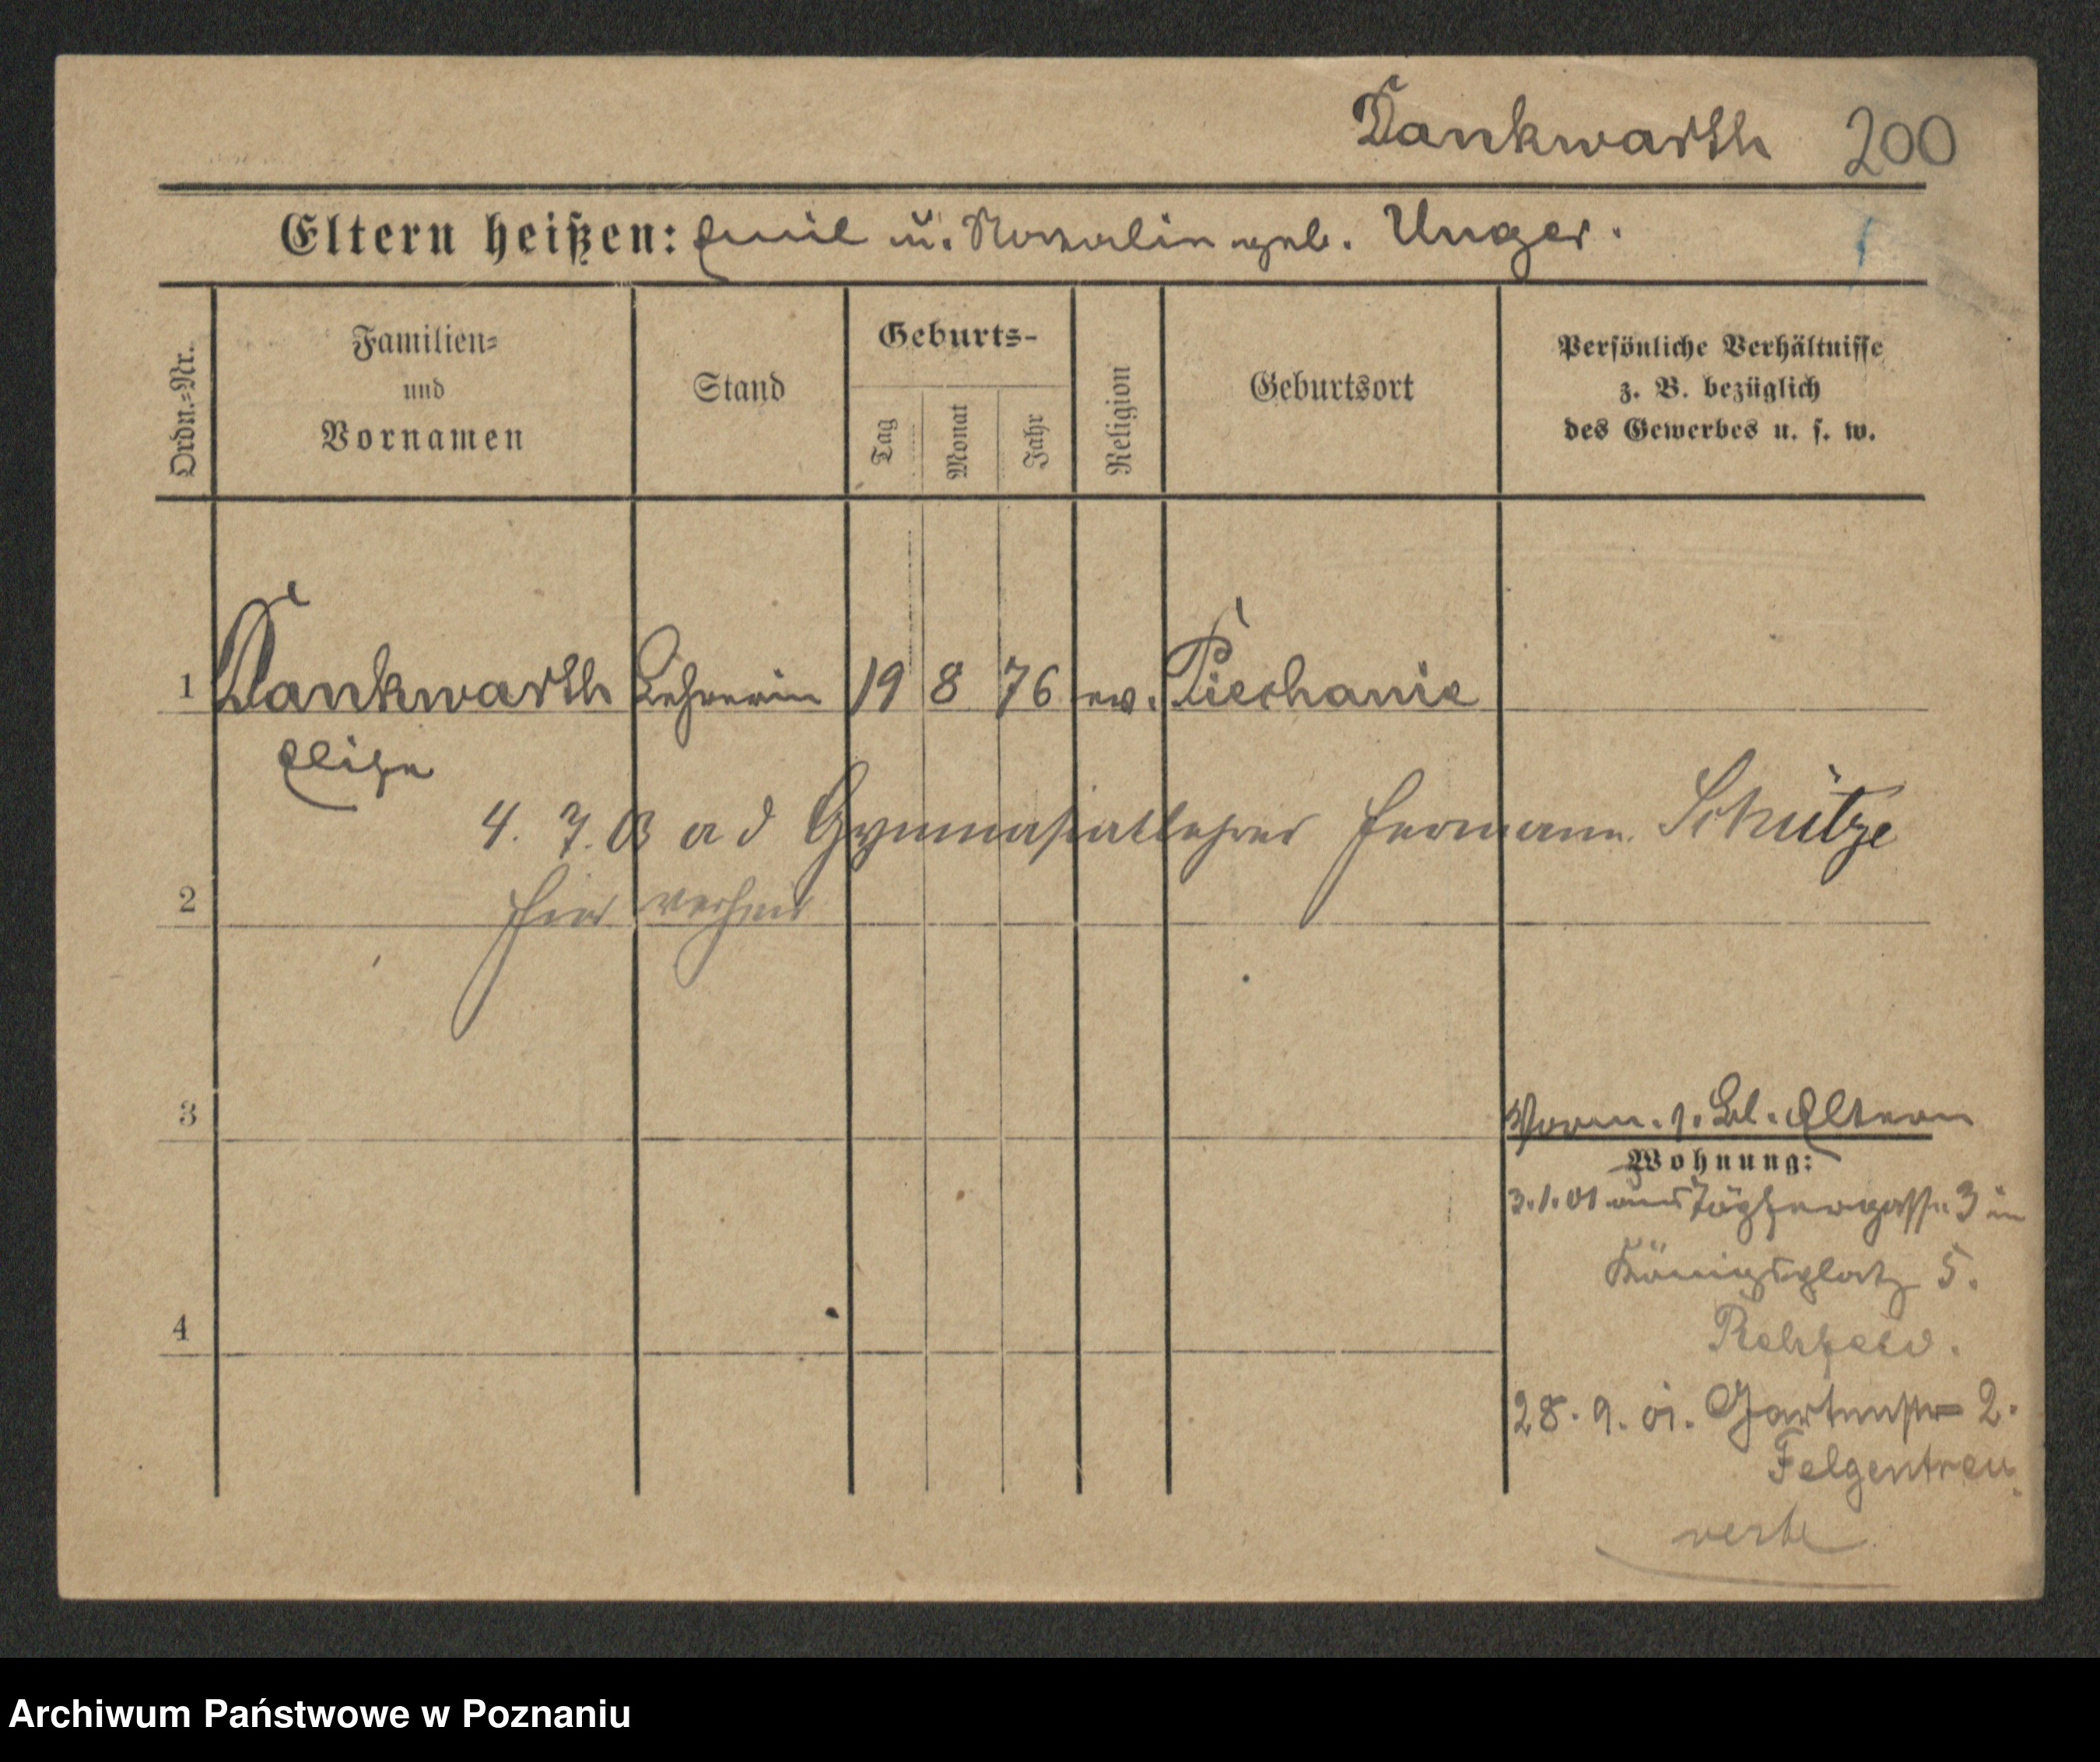 Dankwarth 200
Eltern heißen: Emil u. Rosalie geb. Unger.
Ordn.-Nr.
Familien-
und
Vornamen
Stand
Geburts-
Tag
Monat
Jahr
Religion
Geburtsort
Persönliche Verhältnisse
z. B. bezüglich
des Gewerbes u. s. w.
1 Dankwarth Lehrerin 19 8 76 ev. Piechanie
Elise
4. 7. 03 a d Gymnasiallehrer Hermann Schütze
2 hier verheir
3
Vorm. s. Bl. Eltern
Wohnung:
3.1.01 aus 3 in
Königsplatz 5.
Rehfeld.
4
28. 9. 01. Gartenstr 2.
Felgentreu
verte
Archiwum Państwowe w Poznaniu